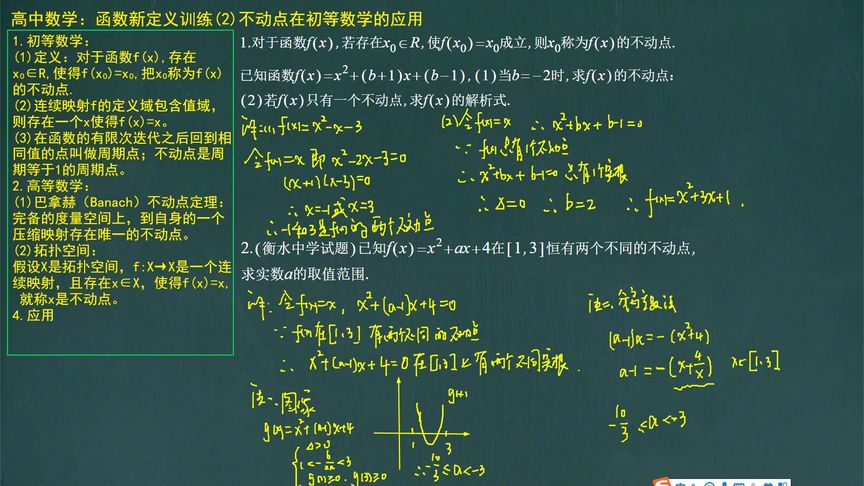 高中数学：函数新定义训练(2)不动点在初等数学的应用
1.初等数学：
(1)定义：对于函数f(x),存在
x₀∈R,使得f(x₀)=x₀,把x₀称为f(x)
的不动点.
(2)连续映射f的定义域包含值域，
则存在一个x使得f(x)=x。
(3)在函数的有限次迭代之后回到相
同值的点叫做周期点；不动点是周
期等于1的周期点。
2.高等数学：
(1)巴拿赫（Banach）不动点定理：
完备的度量空间上，到自身的一个
压缩映射存在唯一的不动点。
(2)拓扑空间：
假设X是拓扑空间，f:X→X是一个连
续映射，且存在x∈X，使得f(x)=x,
就称x是不动点。
4.应用
1.对于函数f(x),若存在x₀∈R,使f(x₀)=x₀成立,则x₀称为f(x)的不动点.
已知函数f(x)=x²+(b+1)x+(b−1),(1)当b=−2时,求f(x)的不动点:
(2)若f(x)只有一个不动点,求f(x)的解析式.
解:(1) f(x)=x²-x-3
令f(x)=x 即 x²-2x-3=0
(x+1)(x-3)=0
∴ x=-1或x=3
∴ -1和3是f(x)的两个不动点
(2)令f(x)=x ∴ x²+bx+b-1=0
∵ f(x)只有1个不动点
∴ x²+bx+b-1=0 只有1个实根
∴ Δ=0 ∴ b=2 ∴ f(x)=x²+3x+1.
2.(衡水中学试题)已知f(x)=x²+ax+4在[1,3]恒有两个不同的不动点,
求实数a的取值范围.
解: 令f(x)=x, x²+(a-1)x+4=0
∵ f(x)在[1,3]有两个不同的不动点
∴ x²+(a-1)x+4=0在[1,3]上有两个不同实根.
法一:图像
g(x)=x²+(a-1)x+4
Δ>0
1<-b/2a<3
g(1)≥0. g(3)≥0
g(x)
1 3
∴ -10/3≤a<-3
法二:分离参数法
(a-1)x=-(x²+4)
a-1=-(x+4/x) x∈[1,3]
-10/3≤a<-3